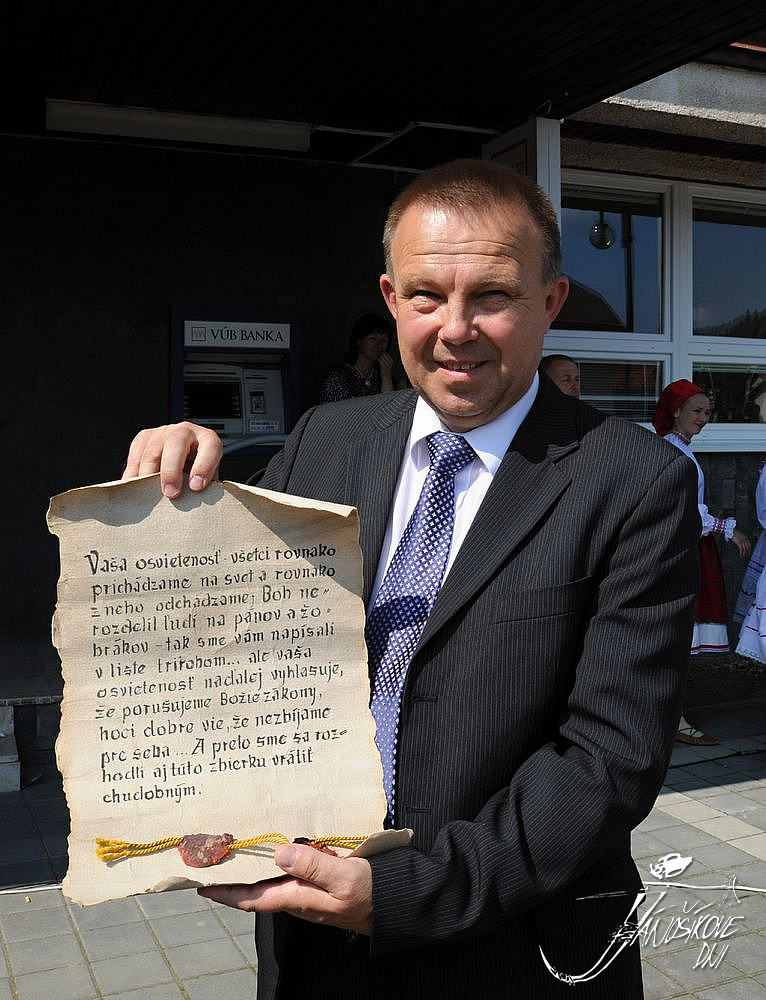 VÚB BANKA
Vaša osvietenosť - všetci rovnako
prichádzame na svet a rovnako
z neho odchádzame; Boh ne-
rozdelil ľudí na pánov a žo-
brákov - tak sme vám napísali
v liste trirohom... ale vaša
osvietenosť nadalej vyhlasuje,
že porušujeme Božie zákony,
hoci dobre vie, že nezbíjame
pre seba ... A preto sme sa roz-
hodli aj túto zbierku vrátiť
chudobným.
JÁNOŠÍKOVE
DNI